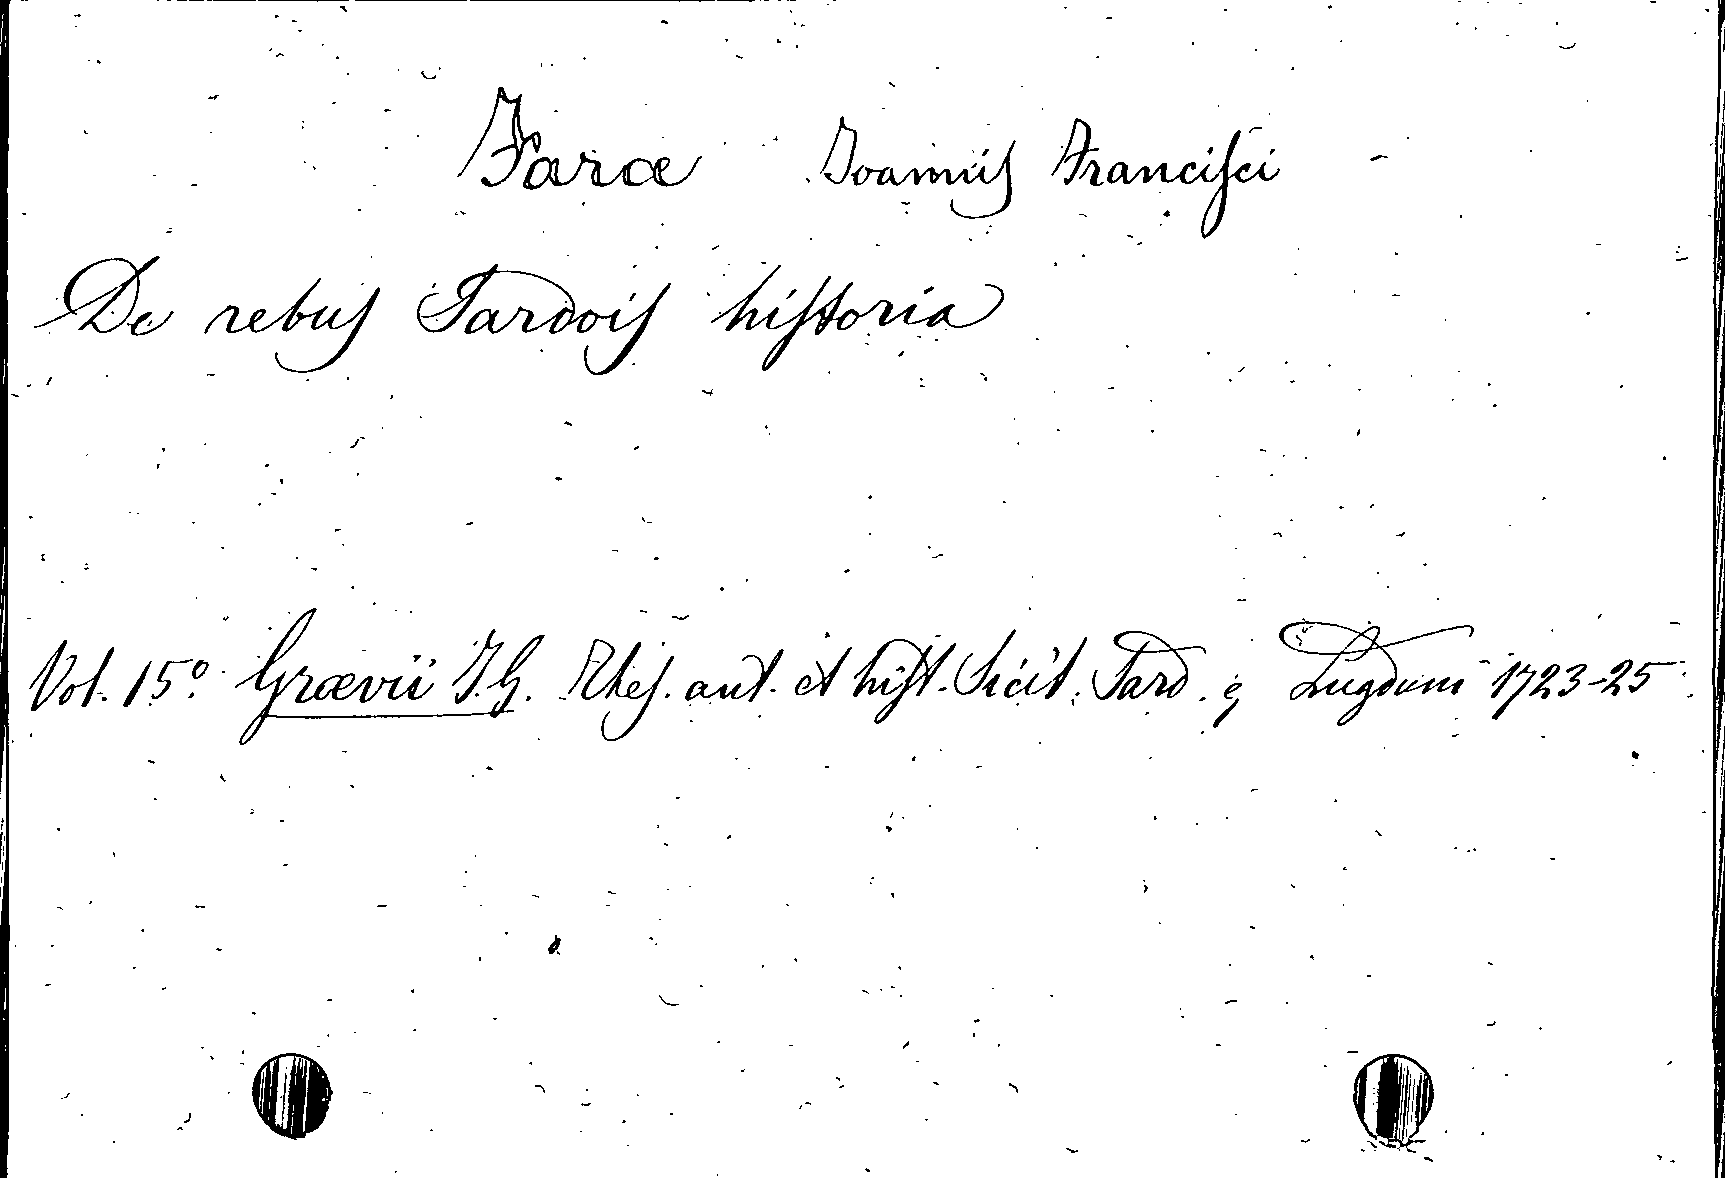 Faræ Joannis Francisci
De rebus Sardois historia
Vol. 15º Grævii J. G. Thes. ant. et hist. Sicil. Sard. Lugduni 1723-25